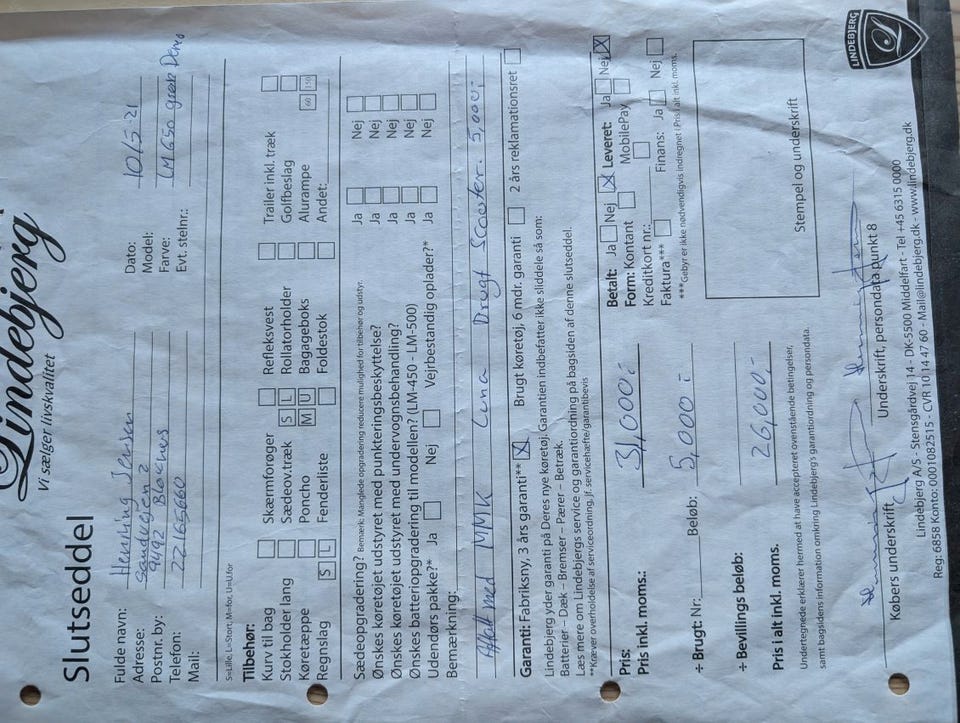 Lindebjerg
Vi sælger livskvalitet
LINDEBJERG
Slutseddel
Fulde navn: Henning Jensen
Adresse: 2
Postnr: by: 9492 Blokhus
Telefon: 22165660
Mail:
Dato: 10/5-21
Model: LM 650 grøn Demo
Farve:
Evt. stelnr.:
S=Lille, L=Stort, M=for, U=U.for
Tilbehør:
Kurv til bag Skærmforøger Refleksvest Trailer inkl. træk
Stokholder lang Sædeov.træk S L Rollatorholder Golfbeslag
Køretæppe Poncho M U Bagageboks Alurampe 60 150
Regnslag S L Fenderliste Foldestok Andet:
Sædeopgradering? Bemærk: Manglede opgradering reducere mulighed for tilbehør og udstyr. Ja Nej
Ønskes køretøjet udstyret med punkteringsbeskyttelse? Ja Nej
Ønskes køretøjet udstyret med undervognsbehandling? Ja Nej
Ønskes batteriopgradering til modellen? (LM-450 - LM-500) Ja Nej
Udendørs pakke?* Ja Nej Vejrbestandig oplader?* Ja Nej
Bemærkning:
Aftalt med MMK Lena Brugt Scooter. 5,000,-
Garanti: Fabriksny, 3 års garanti** Brugt køretøj, 6 mdr. garanti 2 års reklamationsret
Lindebjerg yder garanti på Deres nye køretøj. Garantien indbefatter ikke sliddele så som:
Batterier – Dæk – Bremser – Pærer – Betræk.
Læs mere om Lindebjergs service og garantiordning på bagsiden af denne slutseddel.
**Kræver overholdelse af serviceordning, jf. servicehæfte/garantibevis
Pris:
Pris inkl. moms.: 31,000,-
÷ Brugt: Nr: Beløb: 5,000,-
÷ Bevillings beløb:
Pris i alt inkl. moms. 26,000,-
Betalt: Ja Nej Leveret: Ja Nej
Form: Kontant MobilePay
Kreditkort nr.:
Faktura*** Finans: Ja Nej
***Gebyr er ikke nødvendigvis indregnet i Pris i alt inkl. moms.
Stempel og underskrift
Undertegnede erklærer hermed at have accepteret ovenstående betingelser,
samt bagsidens information omkring Lindebjerg's garantiordning og persondata.
Købers underskrift Underskrift, persondata punkt 8
Lindebjerg A/S - Stensgårdvej 14 - DK-5500 Middelfart - Tel +45 6315 0000
Reg: 6858 Konto: 0001082515 - CVR 10 14 47 60 - Mail@lindebjerg.dk - www.lindebjerg.dk